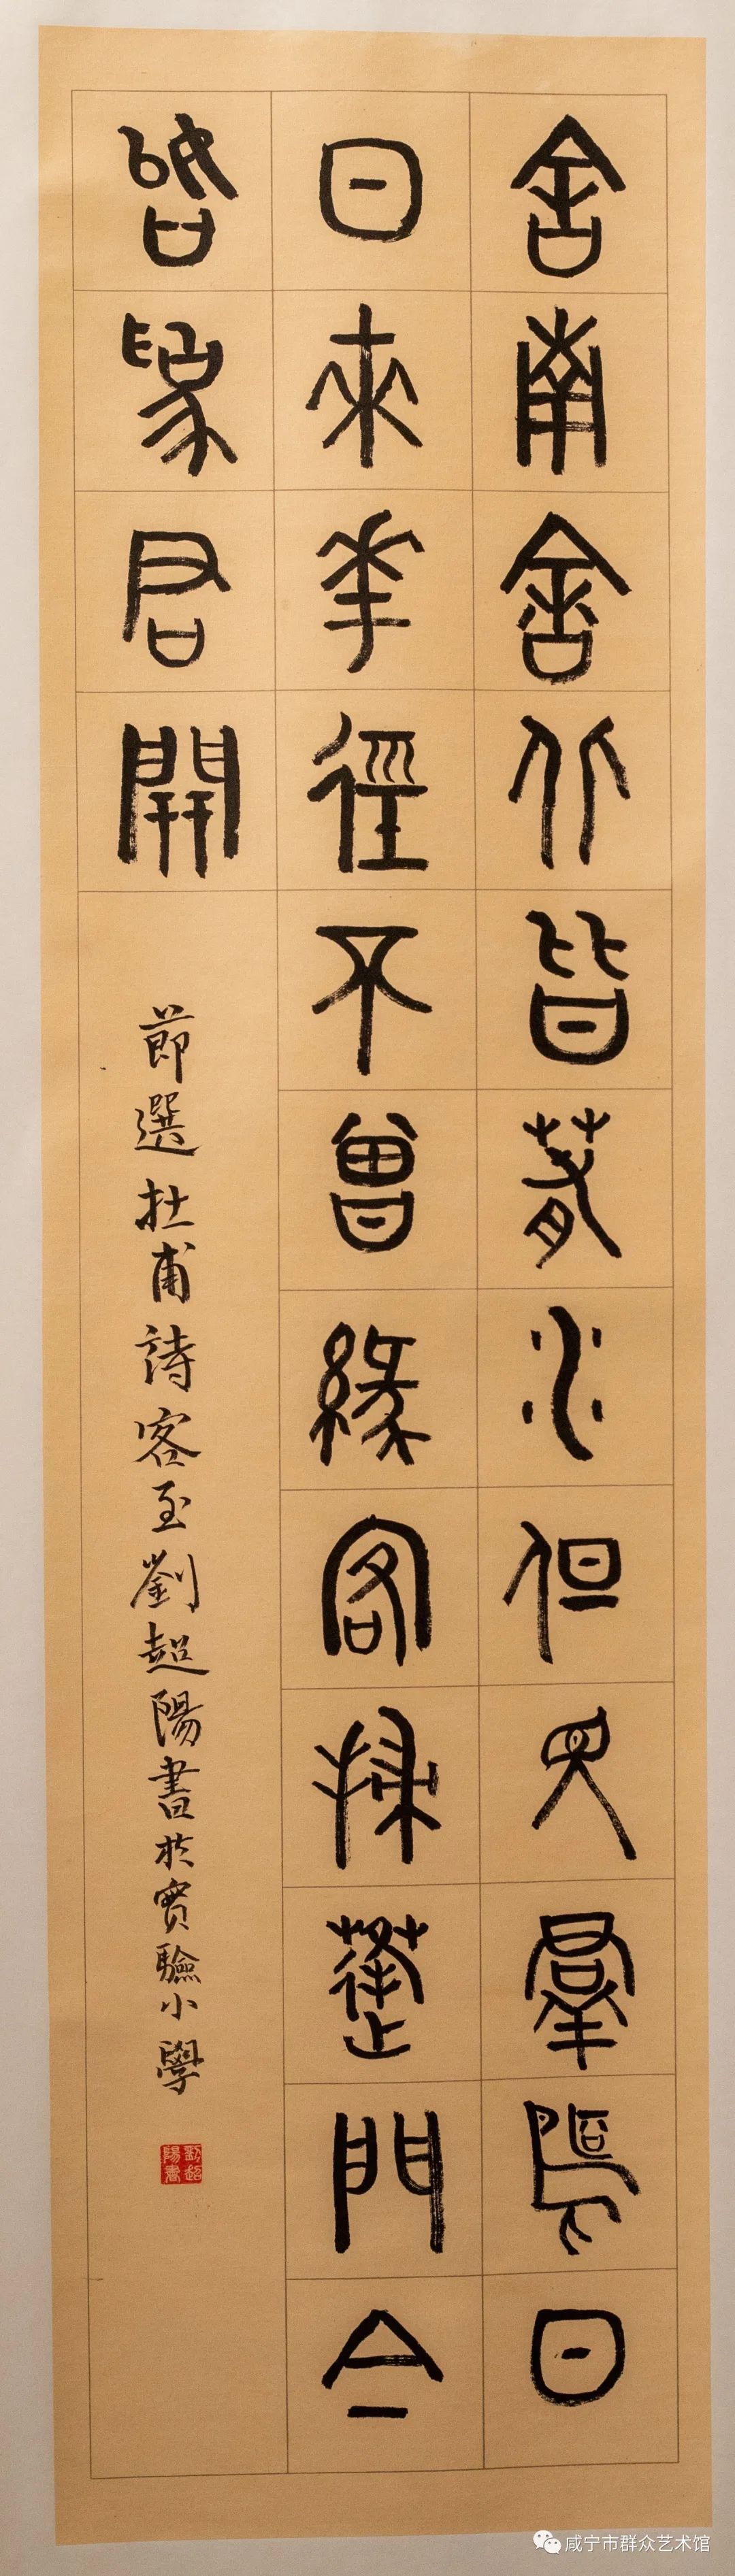 舍南舍北皆春水但見羣鷗日
日來花徑不曾緣客掃蓬門今
始為君開
節選杜甫詩客至劉超陽書於實驗小學
劉超陽書
咸宁市群众艺术馆